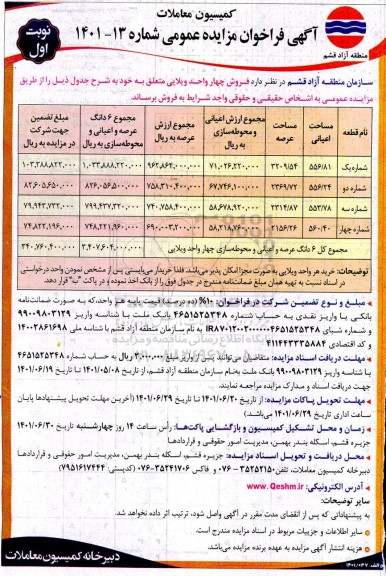 کمیسیون معاملات
آگهی فراخوان مزایده عمومی شماره ۱۳- ۱۴۰۱
نوبت اول
منطقه آزاد قشم
سازمان منطقه آزاد قشم در نظر دارد فروش چهار واحد ویلایی متعلق به خود به شرح جدول ذیل را از طریق
مزایده عمومی به اشخاص حقیقی و حقوقی واجد شرایط به فروش برساند.
نام قطعه | مساحت اعیانی | مساحت عرصه | مجموع ارزش اعیانی و محوطه‌سازی به ریال | مجموع ارزش عرصه به ریال | مجموع ۶ دانگ عرصه و اعیانی و محوطه‌سازی به ریال | مبلغ تضمین جهت شرکت در مزایده به ریال
شماره یک | ۵۵۶/۸۱ | ۳۲۰۹/۵۴ | ۷۱,۰۲۶,۲۲۰,۰۰۰ | ۹۶۲,۸۶۲,۰۰۰,۰۰۰ | ۱,۰۳۳,۸۸۸,۲۲۰,۰۰۰ | ۱۰۳,۳۸۸,۸۲۲,۰۰۰
شماره دو | ۵۵۶/۲۴ | ۲۳۶۹/۷۲ | ۶۷,۷۴۶,۱۰۰,۰۰۰ | ۷۵۸,۳۱۰,۴۰۰,۰۰۰ | ۸۲۶,۰۵۶,۵۰۰,۰۰۰ | ۸۲,۶۰۵,۶۵۰,۰۰۰
شماره سه | ۵۵۳/۷۸ | ۲۳۱۴/۸۷ | ۵۸,۶۷۸,۹۲۰,۰۰۰ | ۷۴۰,۷۵۸,۴۰۰,۰۰۰ | ۷۹۹,۴۳۷,۳۲۰,۰۰۰ | ۷۹,۹۴۳,۷۳۲,۰۰۰
شماره چهار | ۵۶۰/۴۰ | ۲۱۵۶/۲۶ | ۵۸,۲۱۸,۷۶۰,۰۰۰ | ۶۹۰,۰۰۳,۲۰۰,۰۰۰ | ۷۴۸,۲۲۱,۹۶۰,۰۰۰ | ۷۴,۸۲۲,۱۹۶,۰۰۰
مجموع کل ۶ دانگ عرصه و اعیانی و محوطه‌سازی چهار واحد ویلایی | ۳,۴۰۷,۶۰۴,۰۰۰,۰۰۰ | ۳۴۰,۷۶۰,۴۰۰,۰۰۰
توضیحات: خرید هر واحد ویلایی به صورت مجزا امکان پذیر می‌باشد. فلذا خریدار می‌بایستی پس از مشخص نمودن واحد درخواستی
در اسناد نسبت به تهیه همان مبلغ ضمانتنامه مندرج در جدول فوق را از بانک اخذ نموده و در پاکت "ب" قرار دهد.
مبلغ و نوع تضمین شرکت در فراخوان: ۱۰٪ هر واحد که به صورت ضمانتنامه
بانکی یا واریز نقدی به حساب شماره ۴۶۵۱۵۲۵۳۴۸ بانک ملت با شناسه واریز ۹۹۰۰۹۸۰۳۱۲۹
و شماره شبای به نام سازمان منطقه آزاد قشم با شناسه ملی ۱۴۰۰۲۸۶۱۶۹۸
و کد اقتصادی ۴۱۱۴۴۳۳۳۵۸۸۴
مهلت دریافت اسناد مزایده: متقاضیان می‌توانند پس از واریز مبلغ ۳,۰۰۰,۰۰۰ ریال به حساب شماره ۴۶۵۱۵۲۵۳۴۸
با شناسه واریز ۹۹۰۰۹۸۰۳۱۲۹ بانک ملت بنام سازمان منطقه آزاد قشم، از تاریخ ۱۴۰۱/۰۵/۰۸ تا تاریخ ۱۴۰۱/۰۶/۱۹
جهت دریافت اسناد و مدارک مزایده مراجعه نمایند.
مهلت تحویل پاکات مزایده: از تاریخ ۱۴۰۱/۰۶/۲۰ تا تاریخ ۱۴۰۱/۰۶/۲۹ (آخرین مهلت تحویل پیشنهادها پایان
ساعت اداری تاریخ ۱۴۰۱/۰۶/۲۹ می‌باشد.)
زمان و محل تشکیل کمیسیون و بازگشایی پاکت‌ها: رأس ساعت ۱۴ روز چهارشنبه تاریخ ۱۴۰۱/۰۶/۳۰
جزیره قشم، اسکله بندر بهمن، مدیریت امور حقوقی و قراردادها
محل دریافت و تحویل اسناد مزایده: جزیره قشم، اسکله بندر بهمن، مدیریت امور حقوقی و قراردادها
دبیرخانه کمیسیون معاملات، تلفن ۳۵۲۵۲۱۵۰-۰۷۶ و فاکس ۳۵۲۴۱۷۰۶-۰۷۶ (کدپستی: ۷۹۵۱۶۱۷۴۴۴)
آدرس الکترونیکی: www.Qeshm.ir
سایر توضیحات:
به پیشنهاداتی که پس از انقضای مدت مقرر در آگهی واصل شود، ترتیب اثر داده نخواهد شد.
سایر اطلاعات و جزییات مربوط در اسناد مزایده مندرج است.
هزینه انتشار آگهی مزایده به عهده برنده مزایده می‌باشد.
دبیرخانه کمیسیون معاملات